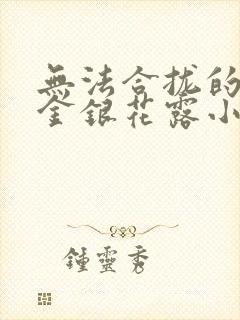 無法合拢的
金銀花露小
鍾靈秀